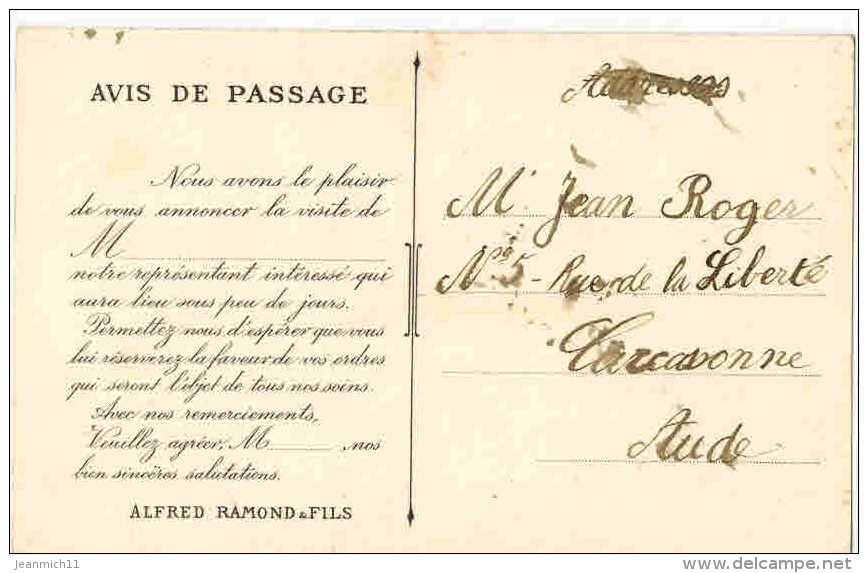 AVIS DE PASSAGE
Nous avons le plaisir
de vous annoncer la visite de
M
notre représentant intéressé qui
aura lieu sous peu de jours.
Permettez nous d'espérer que vous
lui réserverez la faveur de vos ordres
qui seront l'objet de tous nos soins.
Avec nos remerciements,
Veuillez agréer, M , nos
bien sincères salutations.
ALFRED RAMOND & FILS
Mr Jean Roger
5 - Rue de la Liberté
Carcasonne
Aude
jeanmich11
www.delcampe.net